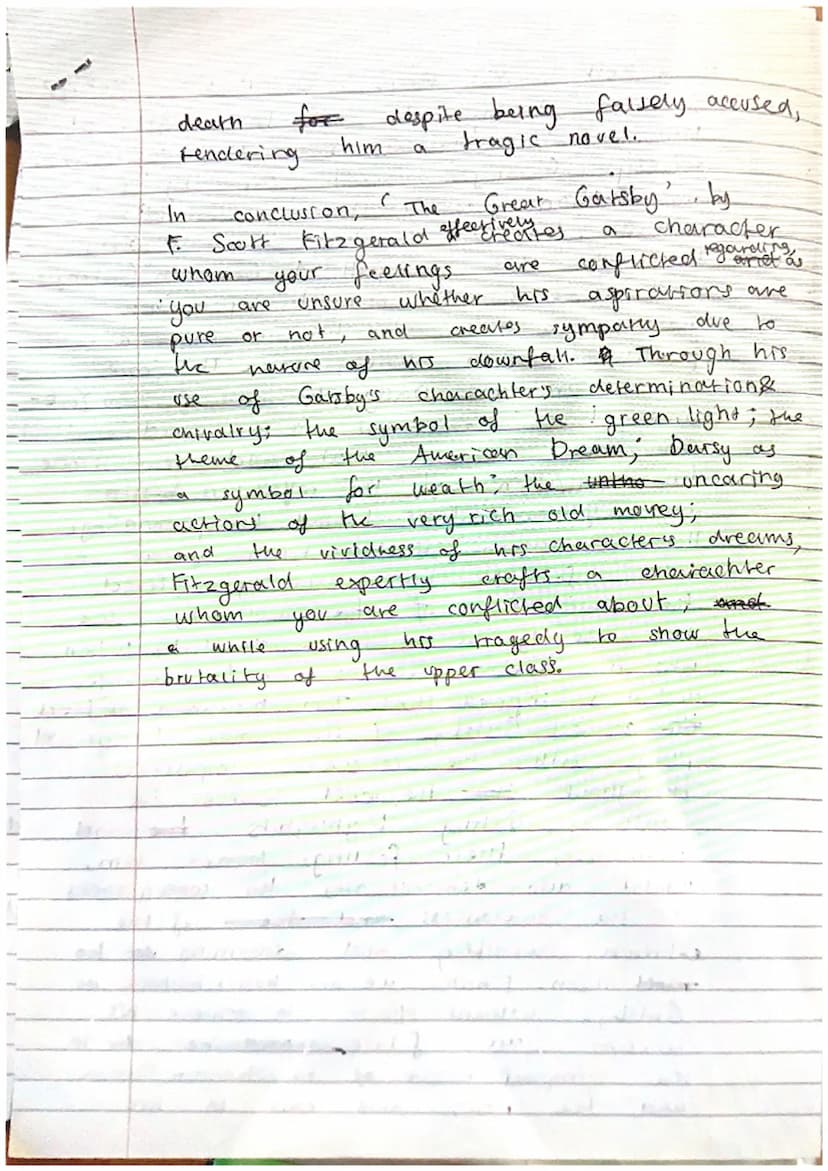 death for despite being falsely accused,
rendering him a tragic novel.
In conclusion, 'The Great Gatsby' by
F. Scott Fitzgerald effectively creates a character
whom your feelings are conflicted regarding, as
you are unsure whether his aspirations are
pure or not, and creates sympathy due to
the nature of his downfall. Through his
use of Gatsby's charachter's determination &
chivalry; the symbol of the green light; the
theme of the American Dream; Daisy as
a symbol for weath; the untho uncaring
actions of the very rich old money;
and the vividness of his character's dreams,
Fitzgerald expertly crafts a charachter
whom you are conflicted about, and
while using his tragedy to show the
brutality of the upper class.